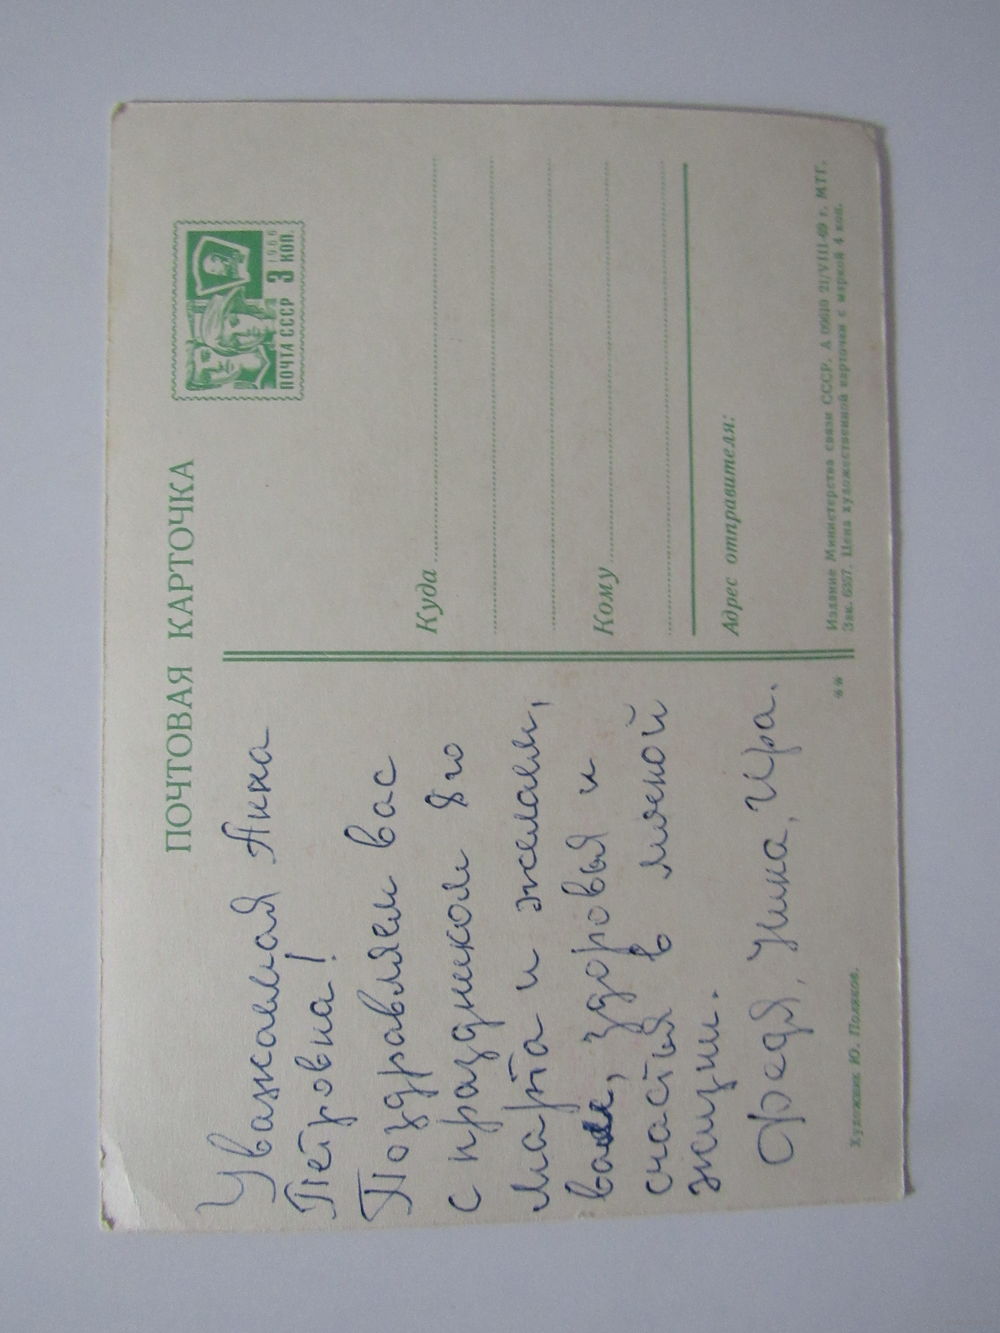 ПОЧТОВАЯ КАРТОЧКА
Уважаемая Анна
Петровна!
Поздравляем вас
с праздником 8го
марта и желаем,
вам, здоровья и
счастья в личной
жизни.
Федя, Нина, Ира.
Художник Ю. Поляков.
ПОЧТА СССР 3 КОП.
1966
Куда
Кому
Адрес отправителя:
Издание Министерства связи СССР. А 21/VIII-69 г. МТГ.
Зак. 6357. Цена художественной карточки с маркой 4 коп.